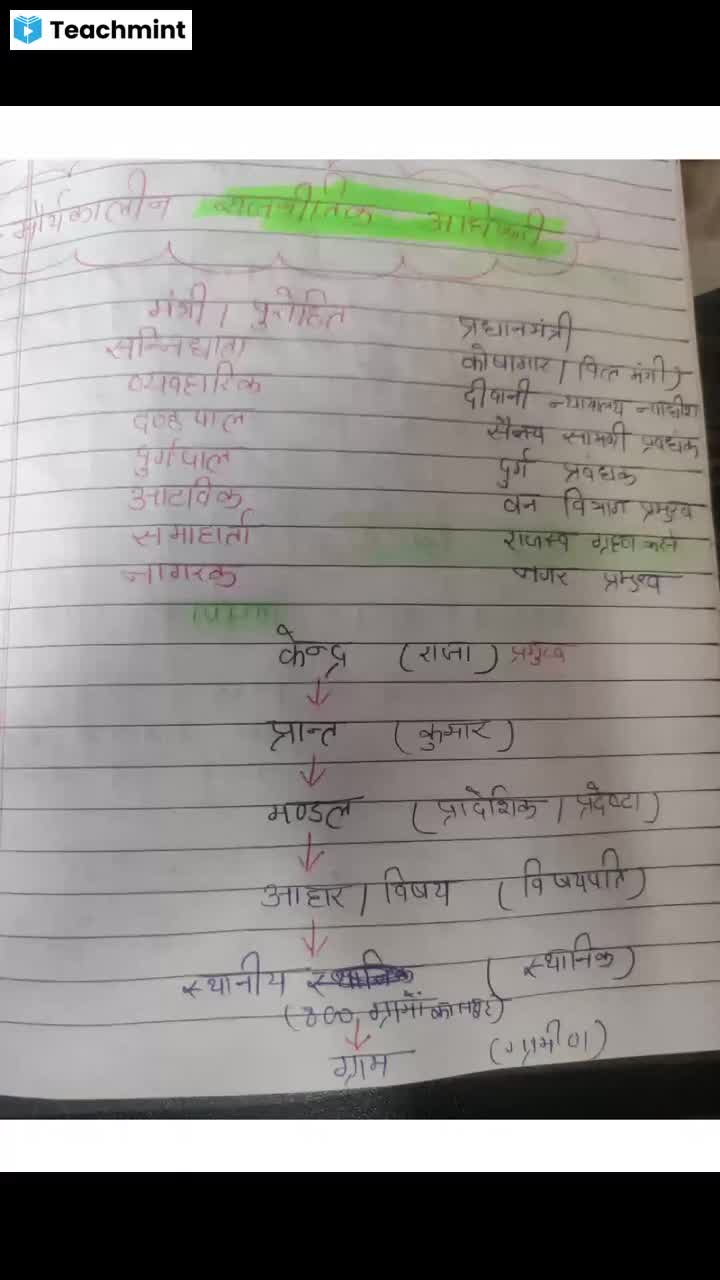 Teachmint
मौर्यकालीन
मंत्री / पुरोहित प्रधानमंत्री
सन्निधाता कोषागार / वित्त मंत्री)
व्यवहारिक दीवानी न्यायालय न्यायाधीश
दण्डपाल सैन्य सामग्री प्रबंधक
दुर्गपाल दुर्ग प्रबंधक
आटविक वन विभाग प्रमुख
समाहर्ता राजस्व ग्रहण
नागरक नगर प्रमुख
केन्द्र (राजा) प्रमुख
↓
प्रान्त (कुमार)
↓
मण्डल (प्रादेशिक / प्रदेष्टा)
↓
आहार / विषय (विषयपति)
↓
स्थानीय (स्थानिक)
(800 ग्रामों का समूह)
↓
ग्राम (ग्रामीण)